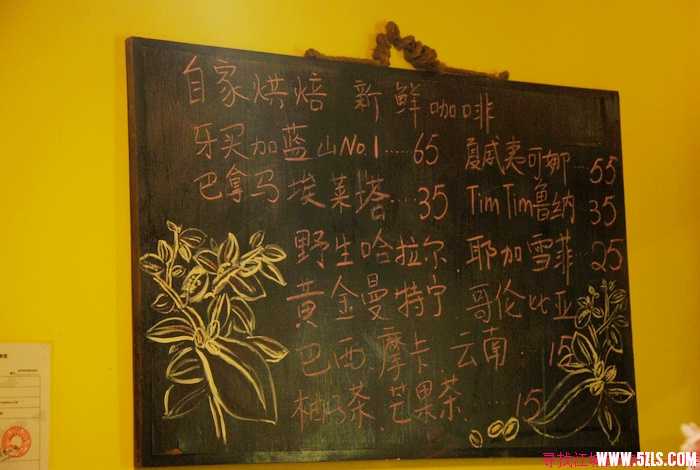 自家烘焙 新鲜咖啡
牙买加蓝山No.1.....65
夏威夷可娜...55
巴拿马埃莱塔....35
Tim Tim鲁纳 35
野生哈拉尔
耶加雪菲...25
黄金曼特宁 哥伦比亚
巴西.摩卡.云南.15
柚子茶.芒果茶....15
WWW.5ZLS.COM